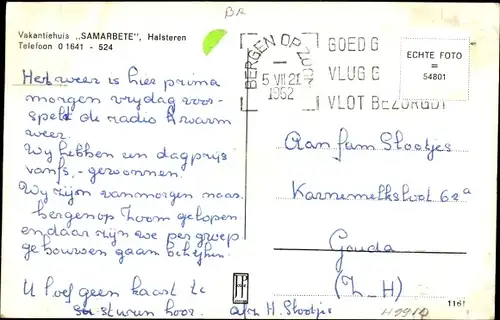 BR
Vakantiehuis „SAMARBETE", Halsteren
Telefoon 0 1641 - 524
BERGEN OP ZOOM
5 VII 21
1962
GOED G
VLUG G
VLOT BEZORGD!
ECHTE FOTO
=
54801
Het weer is hier prima
morgen vrydag voor-
spelt de radio warm
weer.
Wy hebben een dagprijs
van f5,- gewonnen.
Wy zijn vanmorgen naar
bergen op Zoom gelopen
en daar zijn we per groep
gebouwen gaan bekijken.
U hoef geen kaart te
sturen hoor.
Aan fam Slootjes
Karnemelksloot 62a
Gouda
(Z-H)
afz H. Slootjes
1161